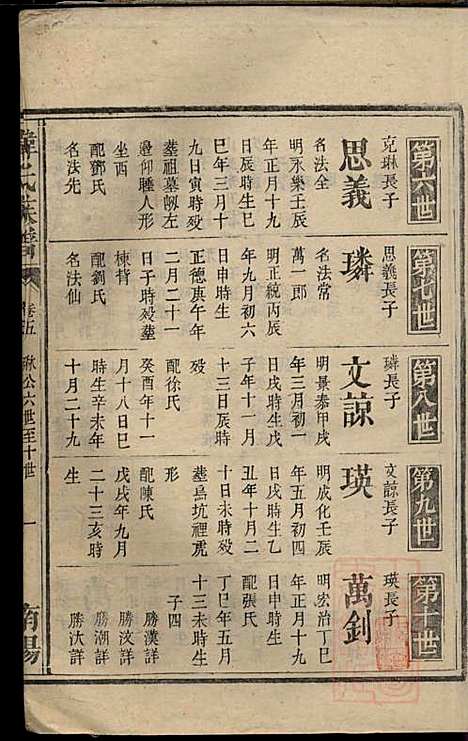 第六世
克琳長子
思義
名法全
明永樂壬辰
年正月十九
日辰時生己
巳年三月十
九日寅時殁
塟祖墓側左
邊仰睡人形
坐西
配鄧氏
名法先
第七世
思義長子
璘
名法常
萬一郎
明正統丙辰
年九月初六
日申時生
正德庚午年
二月二十一
日子時殁塟
棟背
配劉氏
名法仙
第八世
璘長子
文諒
明景泰甲戌
年三月初一
日戌時生戊
子年十一月
十三日辰時
殁
配徐氏
癸酉年十一
月十八日巳
時生辛未年
十月二十九
第九世
文諒長子
瑛
明成化壬辰
年五月初四
日戌時生乙
丑年十月二
十日未時殁
塟烏坑裡虎
形
配陳氏
戊戌年九月
二十三亥時
生
第十世
瑛長子
萬釗
明宏治丁巳
年正月十九
配張氏
丁巳年五月
十三未時生
子四
勝漢詳
勝汶詳
勝潮詳
勝汰詳
氏族譜
卷五
公六世至十世
一
南陽